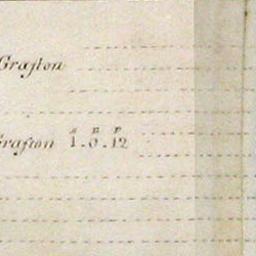 Grafton
Grafton 1.0.12